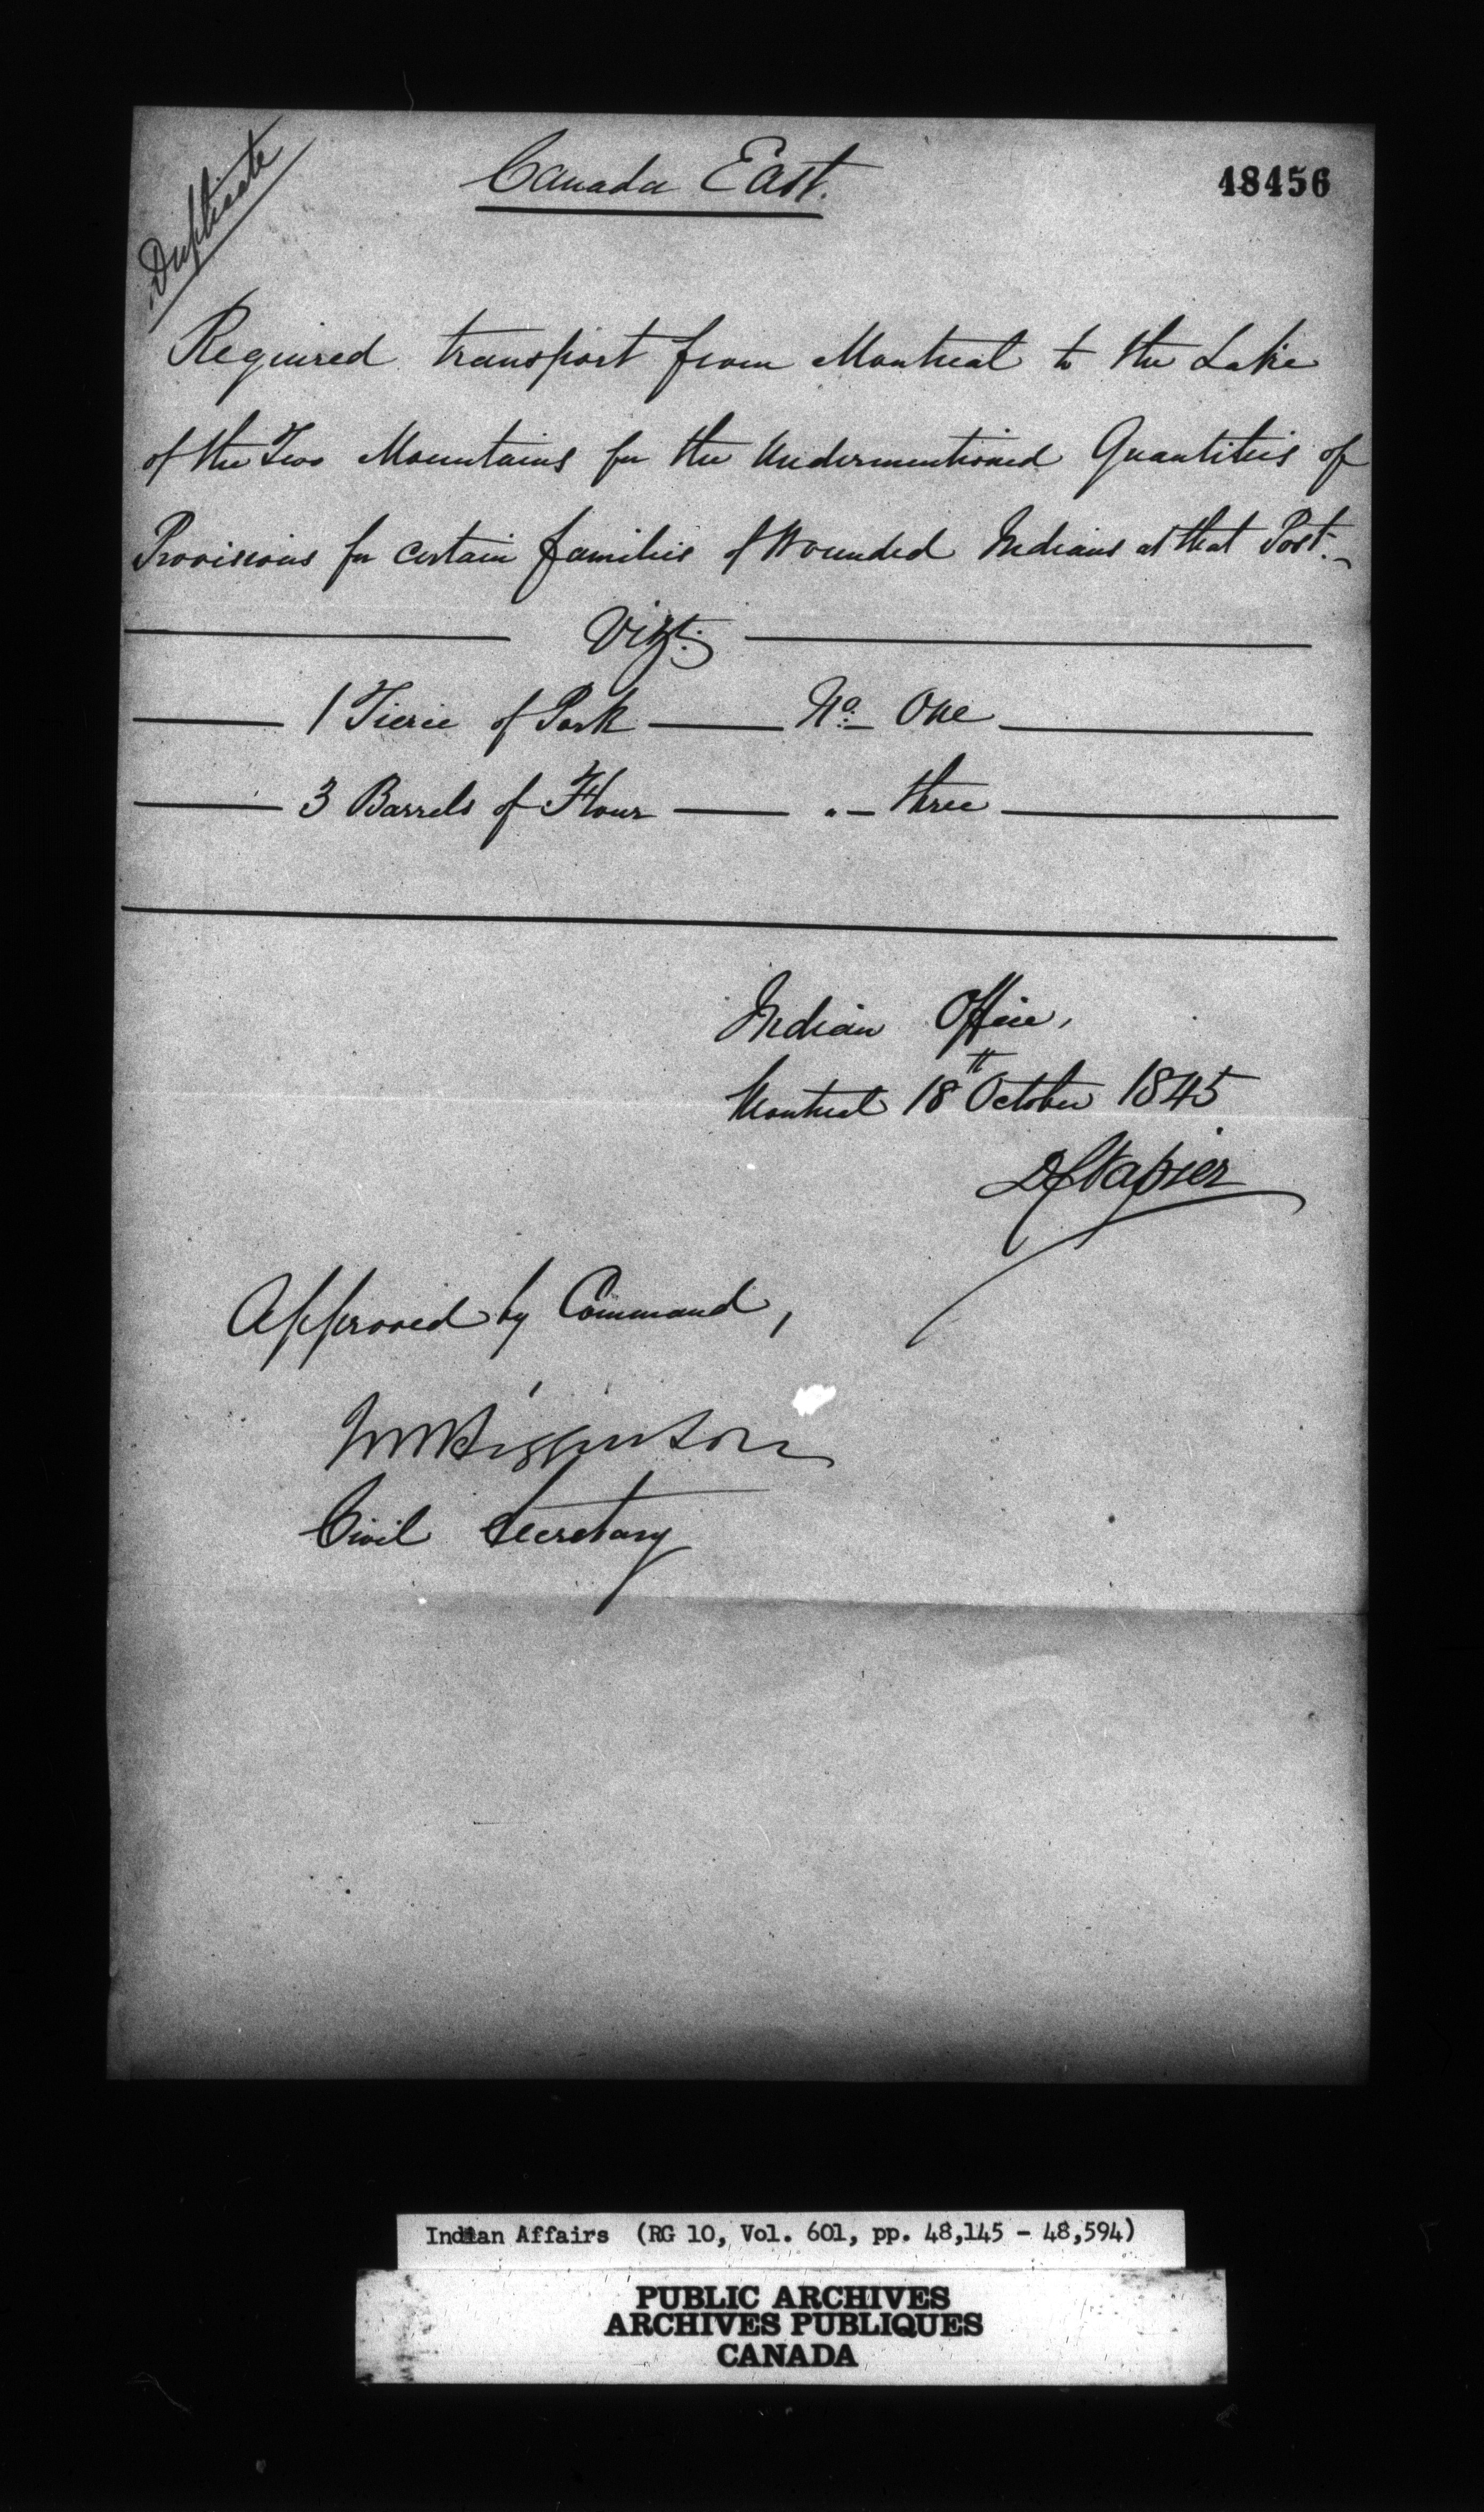 Duplicate
Canada East.
48456
Required transport from Montreal to the Lake
of the Two Mountains for the Undermentioned Quantities of
Provisions for certain families of Wounded Indians at that Post.
Vizt.
1 Tierce of Pork No. One
3 Barrels of Flour " three
Indian Office,
Montreal 18th October 1845
D C Napier
Approved by Command,
J M Higginson
Civil Secretary
Indian Affairs (RG 10, Vol. 601, pp. 48,145 - 48,594)
PUBLIC ARCHIVES
ARCHIVES PUBLIQUES
CANADA